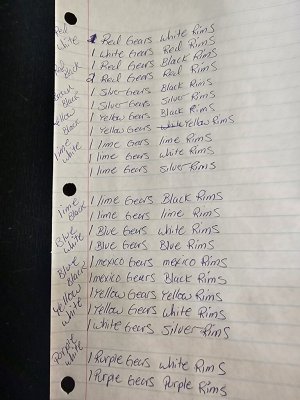 Red
White
1 Red Gears White Rims
1 White Gears Red Rims
Red
Black
1 Red Gears Black Rims
2 Red Gears Red Rims
Black
1 Silver Gears Black Rims
1 Silver Gears Silver Rims
Yellow
Black
1 Yellow Gears Black Rims
1 Yellow Gears Yellow Rims
lime
White
1 lime Gears lime Rims
1 lime Gears White Rims
1 lime Gears Silver Rims
lime
Black
1 lime Gears Black Rims
1 lime Gears lime Rims
Blue
White
1 Blue Gears White Rims
1 Blue Gears Blue Rims
Blue
Black
1 mexico Gears mexico Rims
1 mexico Gears Black Rims
Yellow
White
1 Yellow Gears Yellow Rims
1 Yellow Gears White Rims
1 White Gears Silver Rims
Purple
White
1 Purple Gears White Rims
1 Purple Gears Purple Rims